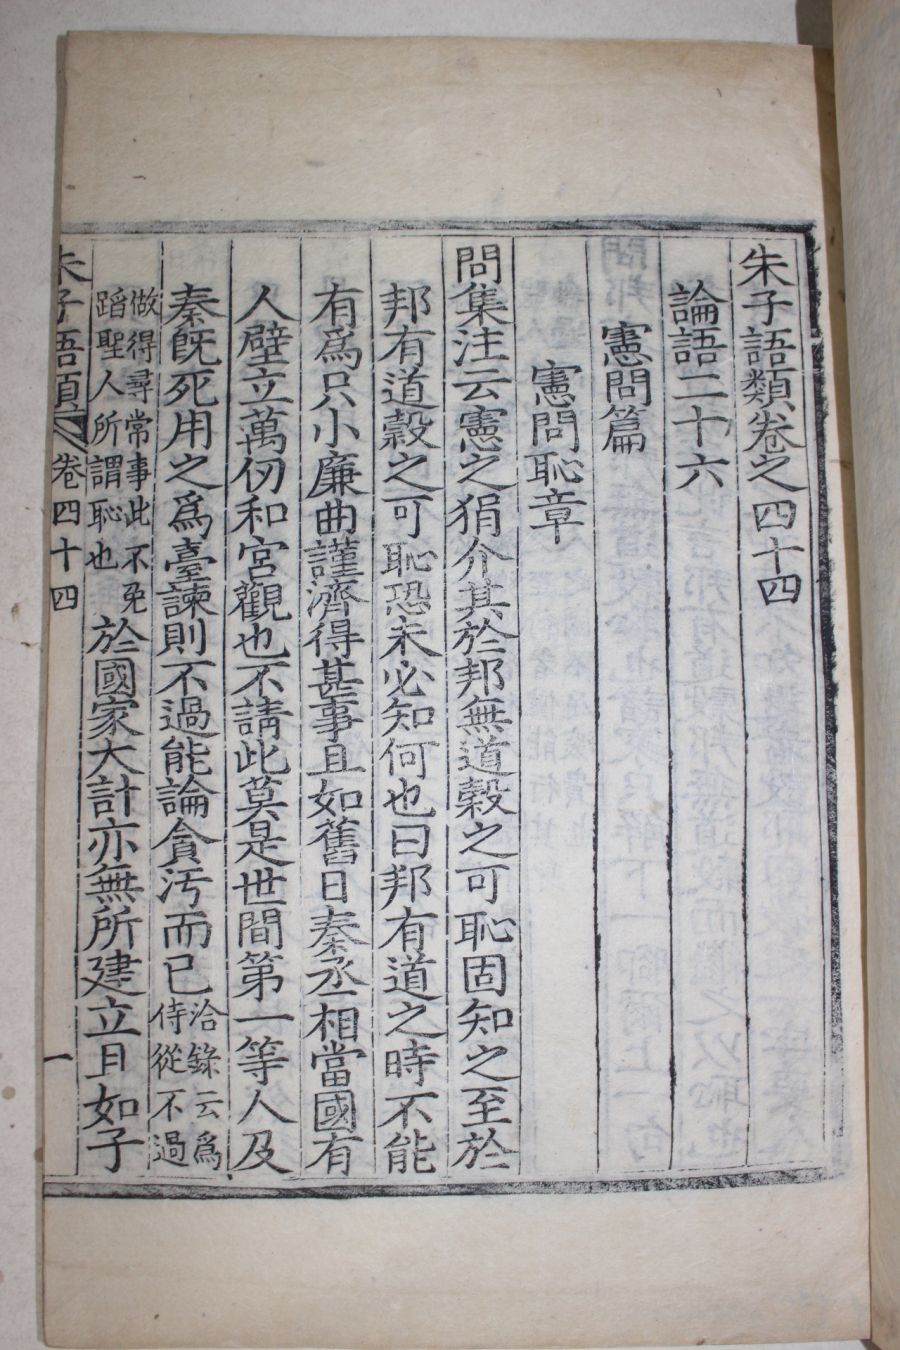 朱子語類卷之四十四
論語二十六
憲問篇
憲問恥章
問集注云憲之狷介其於邦無道穀之可恥固知之至於
邦有道穀之可恥恐未必知何也曰邦有道之時不能
有爲只小廉曲謹濟得甚事且如舊日秦丞相當國有
人壁立萬仞和宮觀也不請此莫是世間第一等人及
秦旣死用之爲臺諫則不過能論貪汚而已
洽錄云爲
侍從不過
做得尋常事此不免
蹈聖人所謂恥也
於國家大計亦無所建立且如子
朱子語類 卷四十四 一